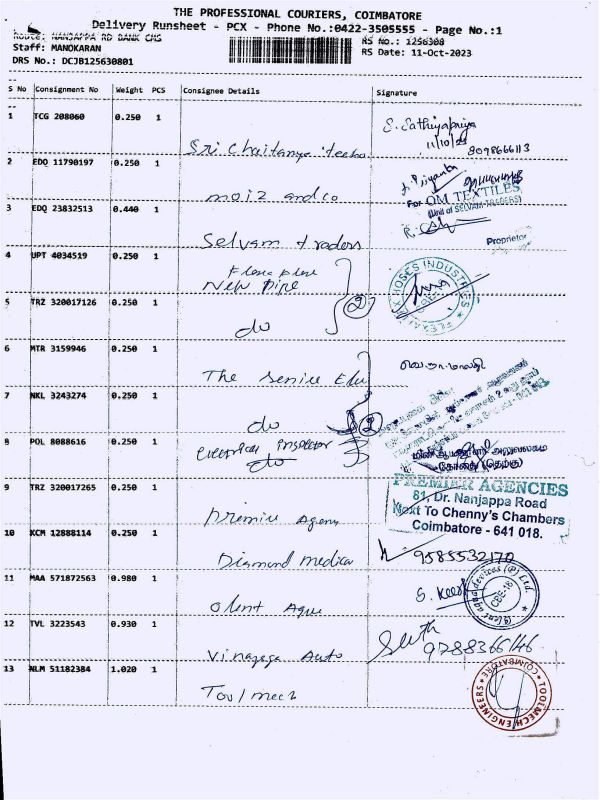 THE PROFESSIONAL COURIERS, COIMBATORE
Delivery Runsheet - PCX - Phone No.:0422-3505555 - Page No.:1
Route: NANJAPPA RD BANK CHG
RS No.: 1256308
Staff: MANOKARAN
RS Date: 11-Oct-2023
DRS No.: DCJB125630801
S No Consignment No Weight PCS Consignee Details Signature
1 TCG 208060 0.250 1 Sri Chaitanya Techno S. Sathiyapriya
11/10/23
8098666113
2 EDQ 11790197 0.250 1 moiz and co
For OM TEXTILES
(Unit of SELVAM TRADERS)
3 EDQ 23832513 0.440 1 Selvam traders
Proprietor
4 UPT 4034519 0.250 1
New pipe
HOSES INDUSTRIES
5 TRZ 320017126 0.250 1 do 2
6 MTR 3159946 0.250 1 The senior
7 NKL 3243274 0.250 1 do 2
8 POL 8088616 0.250 1 electrical inspector
do
மின் ஆய்வாளர் அலுவலகம்
கோவை (தெற்கு)
9 TRZ 320017265 0.250 1 premier Agency
PREMIER AGENCIES
81, Dr. Nanjappa Road
Next To Chenny's Chambers
Coimbatore - 641 018.
10 KCM 12888114 0.250 1 Diamond medical 9585532170
11 MAA 571872563 0.980 1
CBE-18
12 TVL 3223543 0.930 1 Vinayaga Auto
9788366146
13 NLM 51182384 1.020 1 Toolmech
TOOLMECH ENGINEERS
COIMBATORE